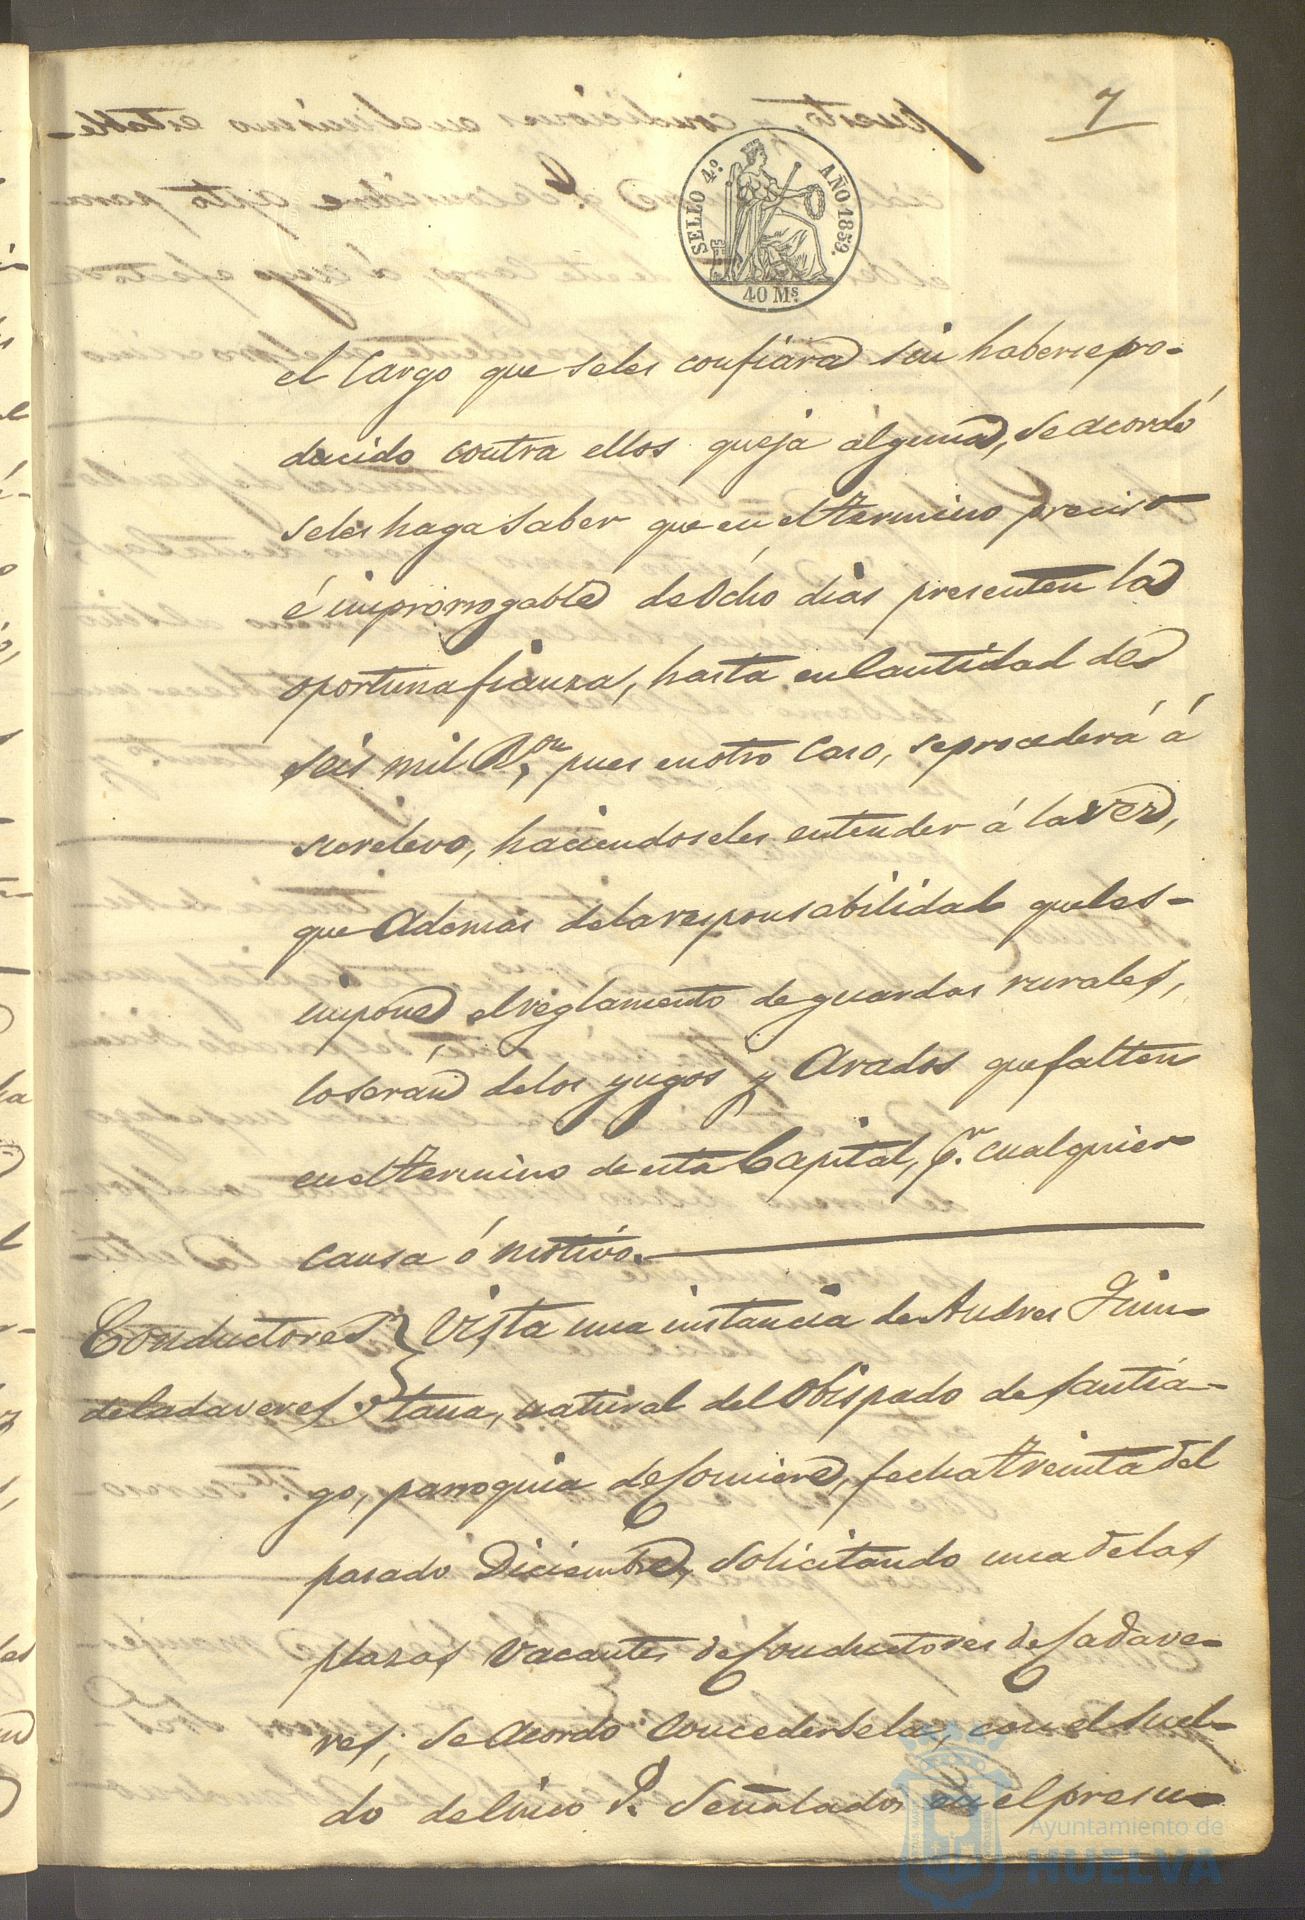 7
SELLO 4º AÑO 1859.
40 Ms.
el cargo que seles confiara sin haberse pro-
ducido contra ellos queja alguna, se acordó
seles haga saber que en el termino preciso
é improrrogable de ocho dias presenten la
oportuna fianza, hasta en cantidad de
seis mil Rs. on pues en otro caso, se procederá á
su relevo, haciendoseles entender á la vez,
que Ademas de la responsabilidad que les-
impone el reglamento de guardas rurales,
lo serán de los yugos y Arados que falten
en el termino de esta Capital, pr. cualquier
causa ó motivo.
Conductores
de Cadaveres
Vista una instancia de Andres Quin-
tana, natural del Obispado de Santia-
go, parroquia de fecha treinta del
pasado Diciembre, solicitando una de las
plazas vacantes de Conductores de Cadave-
res; se Acordo concedersela, con el suel-
do de cinco r. señalados en el presu-
Ayuntamiento de
HUELVA